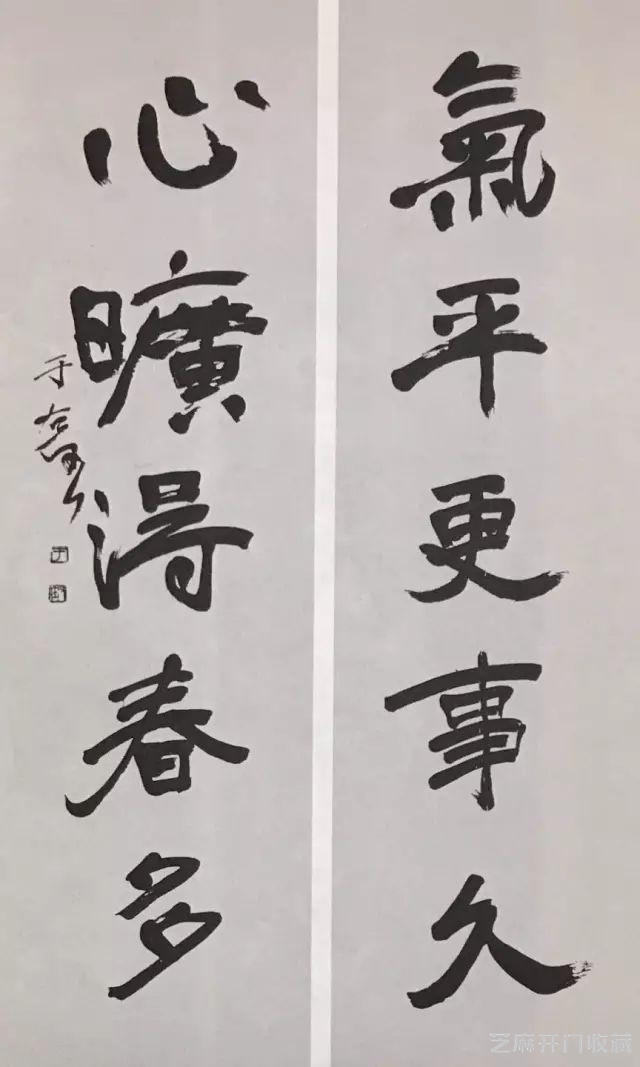 氣平更事久
心曠得春多
于
芝麻开门收藏